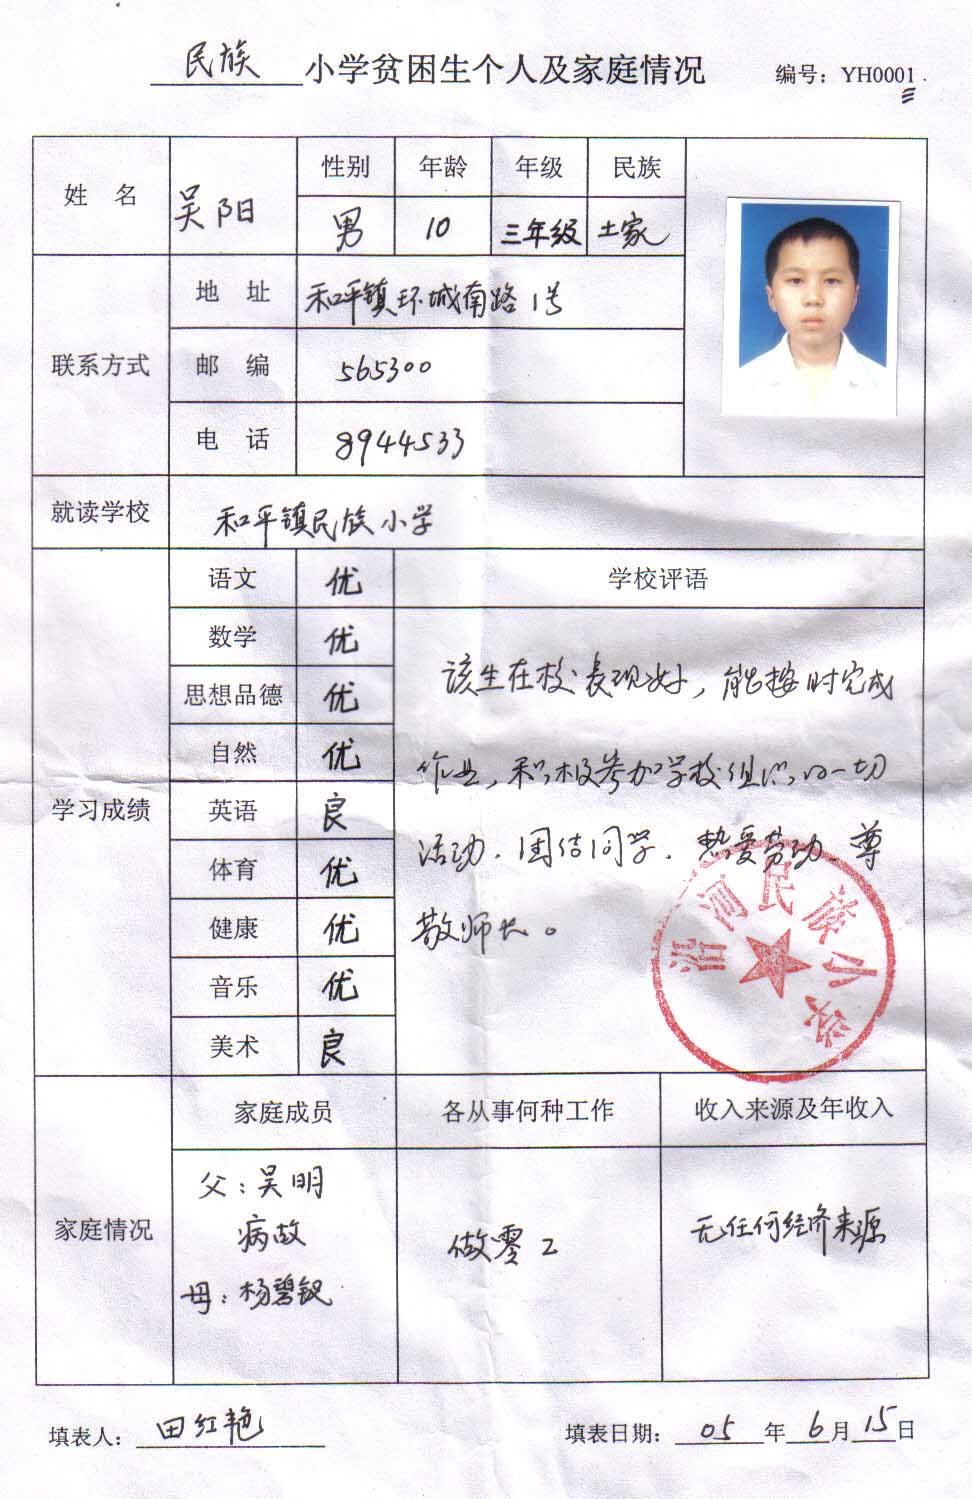 民族 小学贫困生个人及家庭情况 编号：YH0001
姓 名 吴阳 性别 年龄 年级 民族
男 10 三年级 土家
联系方式
地 址 和平镇环城南路1号
邮 编 565300
电 话 8944533
就读学校 和平镇民族小学
学习成绩
语文 优 学校评语
数学 优
思想品德 优
自然 优
英语 良
体育 优
健康 优
音乐 优
美术 良
该生在校表现好，能按时完成
作业，积极参加学校组织的一切
活动、团结同学、热爱劳动、尊
敬师长。
沿河民族小学
家庭情况
家庭成员 各从事何种工作 收入来源及年收入
父：吴明
病故
母：杨碧钗
做零工
无任何经济来源
填表人：田红艳 填表日期：05 年 6 月 15 日